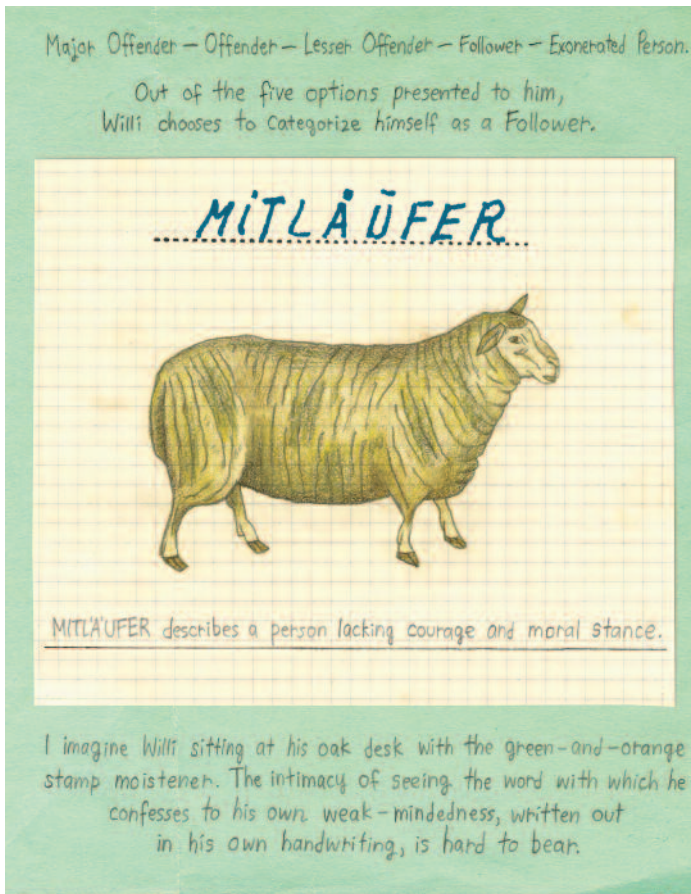 Major Offender – Offender – Lesser Offender – Follower – Exonerated Person.
Out of the five options presented to him,
Willi chooses to categorize himself as a Follower.
MITLÄUFER
MITLÄUFER describes a person lacking courage and moral stance.
I imagine Willi sitting at his oak desk with the green-and-orange
stamp moistener. The intimacy of seeing the word with which he
confesses to his own weak-mindedness, written out
in his own handwriting, is hard to bear.